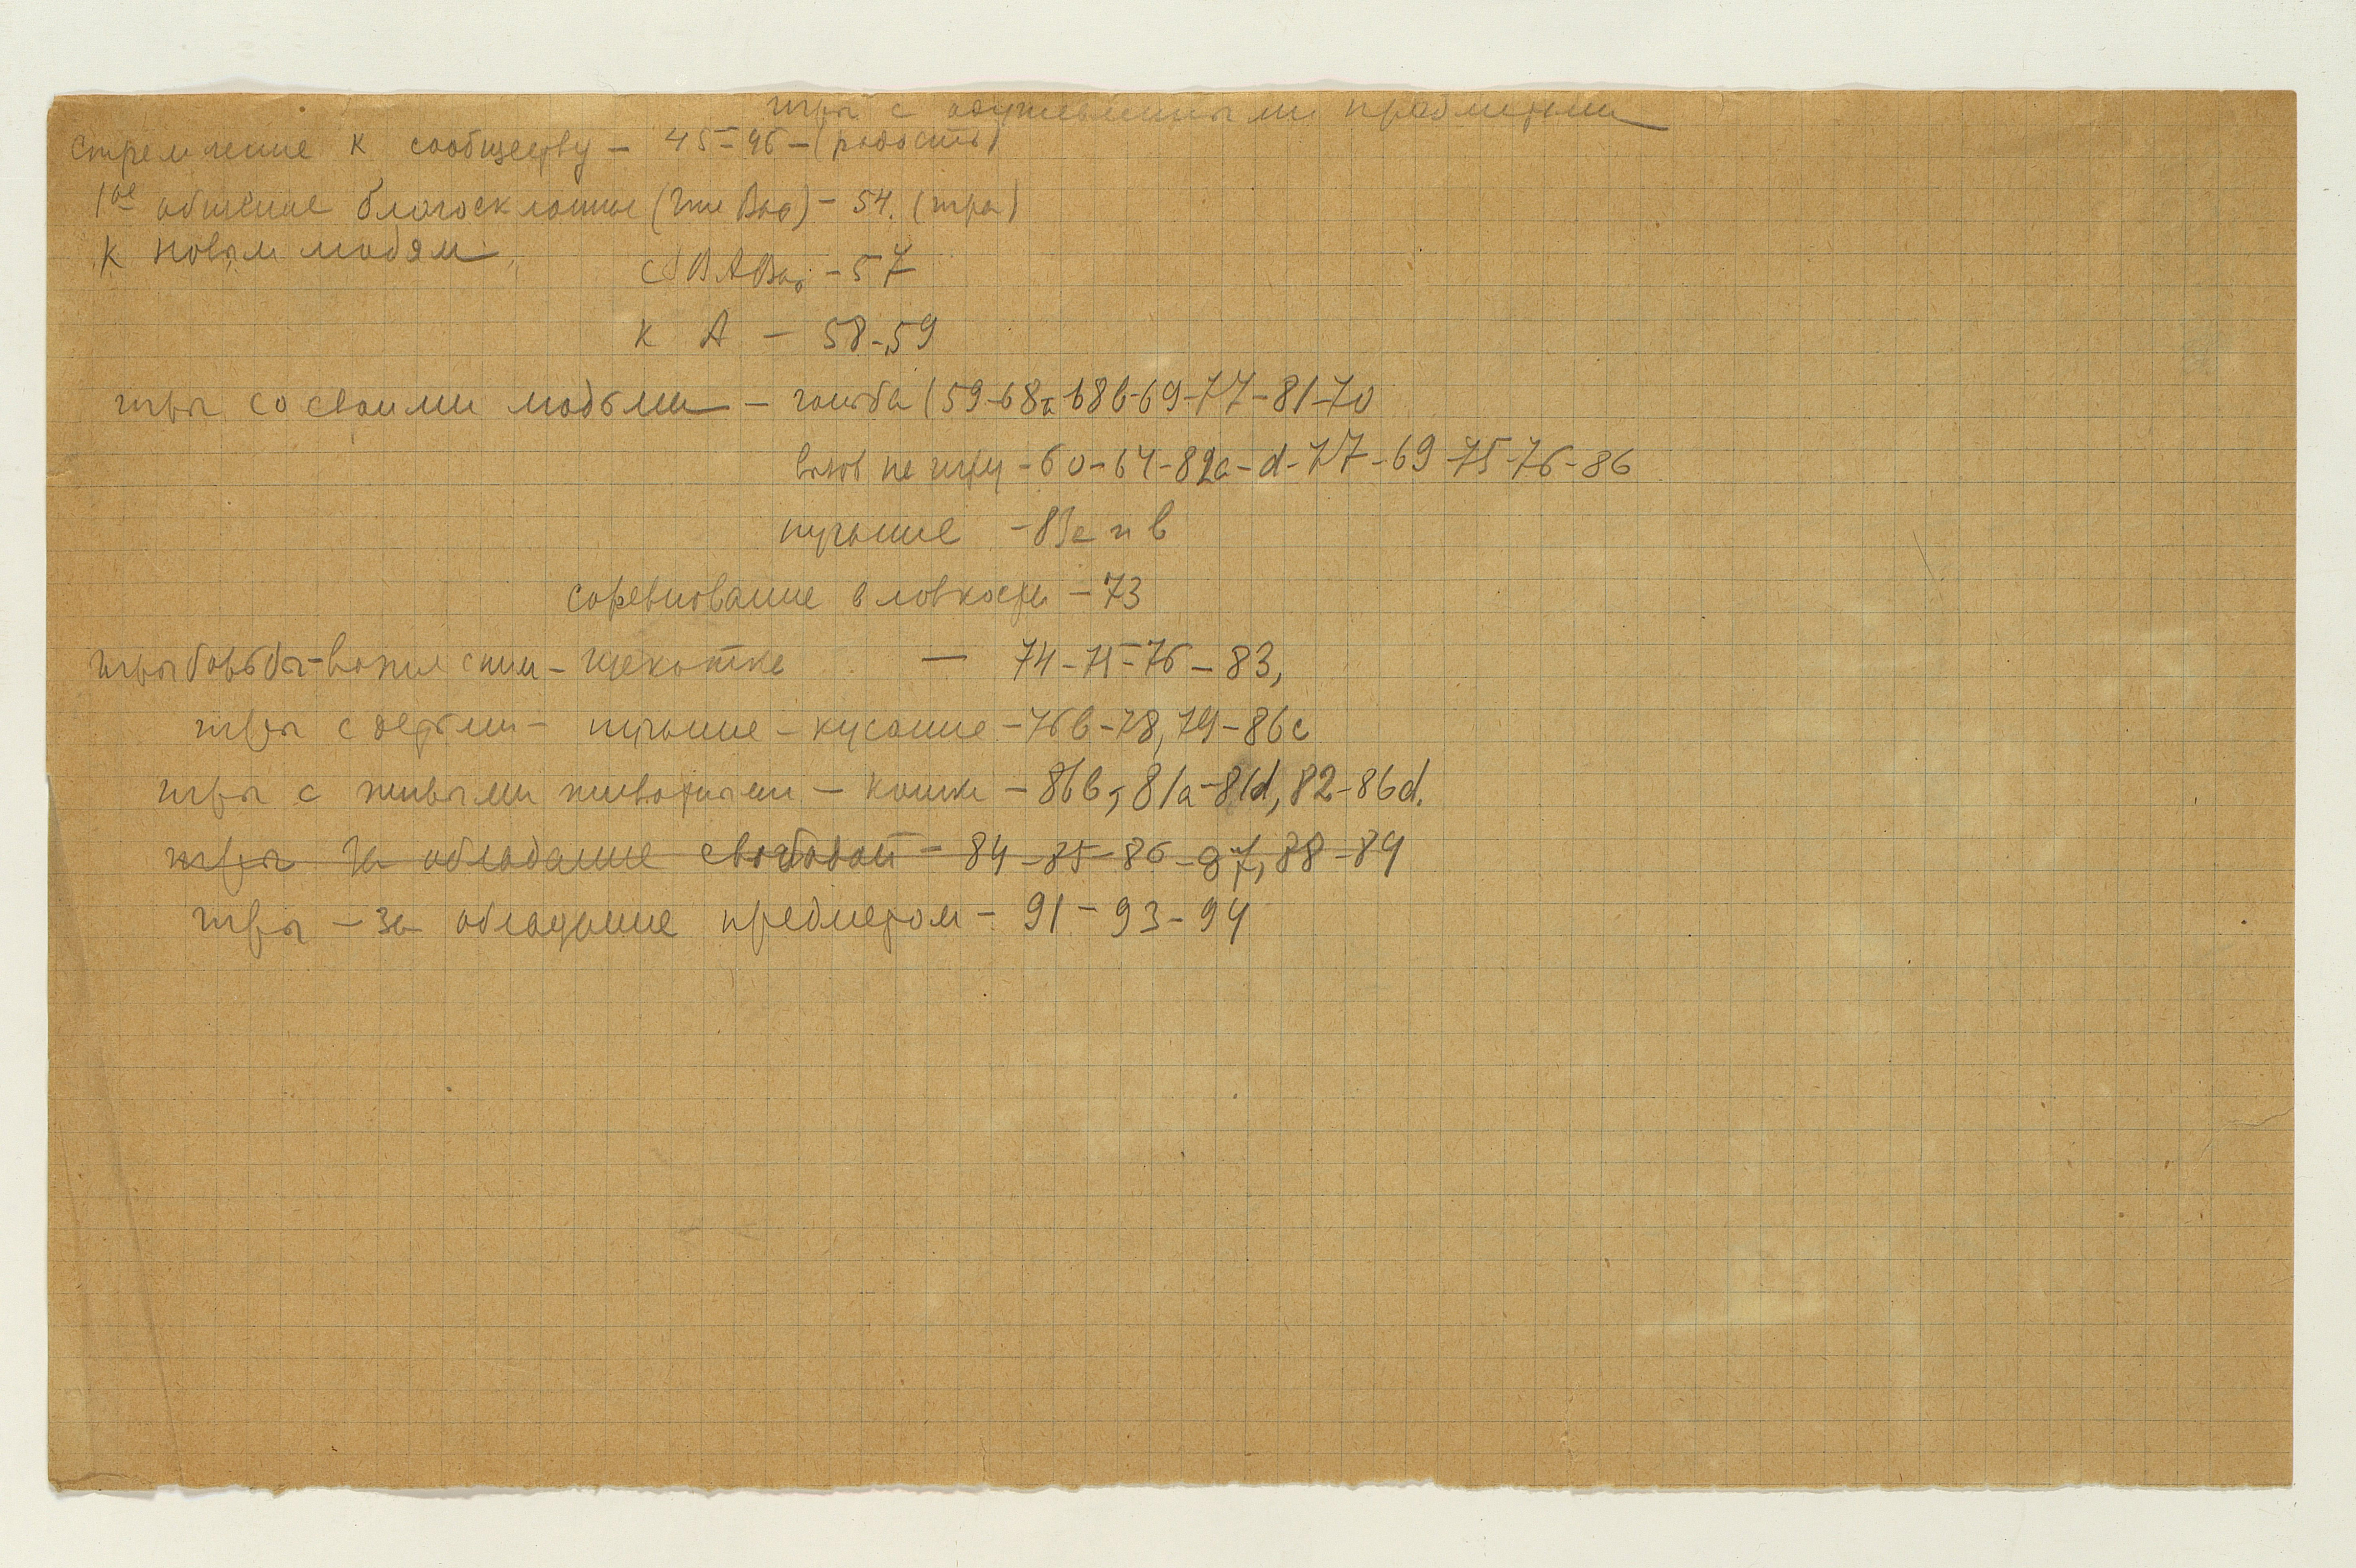 игры с одушевленными предметами
стремление к сообществу – 45–46 – (радость)
1ое общение благосклонное – 54. (игра)
к новым людям
– 57
к А – 58–59
игры со своими людьми – гоньба (59–68а–68b–69–77–81–70
вызов на игру – 60–64–82a–d–77–69–75–76–86
пугание – 83а и в
соревнование в ловкости – 73
игры борьбы – щекотке – 74–75–76–83,
игры с детьми – пугание – кусание – 76b–78, 79–86c
игры с живыми животными – кошка – 86b, 81a–81d, 82–86d.
игры за обладание свободой – 84–85–86–87, 88–89
игры – за обладание предметом – 91–93–94